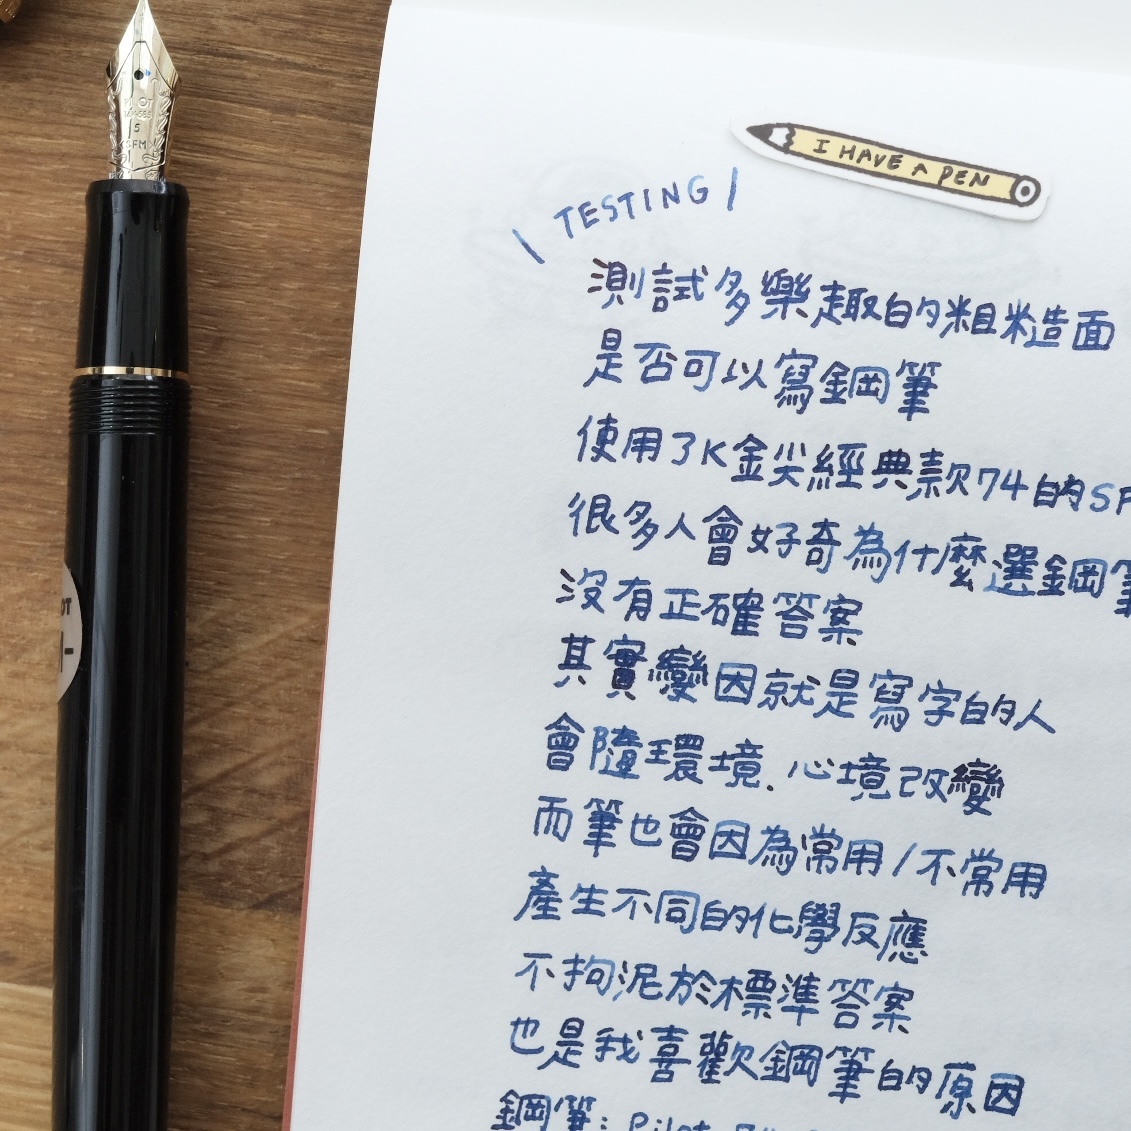 PILOT
585
5
SFM
I HAVE A PEN
\ TESTING /
測試多樂趣的粗糙面
是否可以寫鋼筆
使用了K金尖經典款74的SF
很多人會好奇為什麼選鋼筆
沒有正確答案
其實變因就是寫字的人
會隨環境、心境改變
而筆也會因為常用/不常用
產生不同的化學反應
不拘泥於標準答案
也是我喜歡鋼筆的原因
鋼筆: Pilot